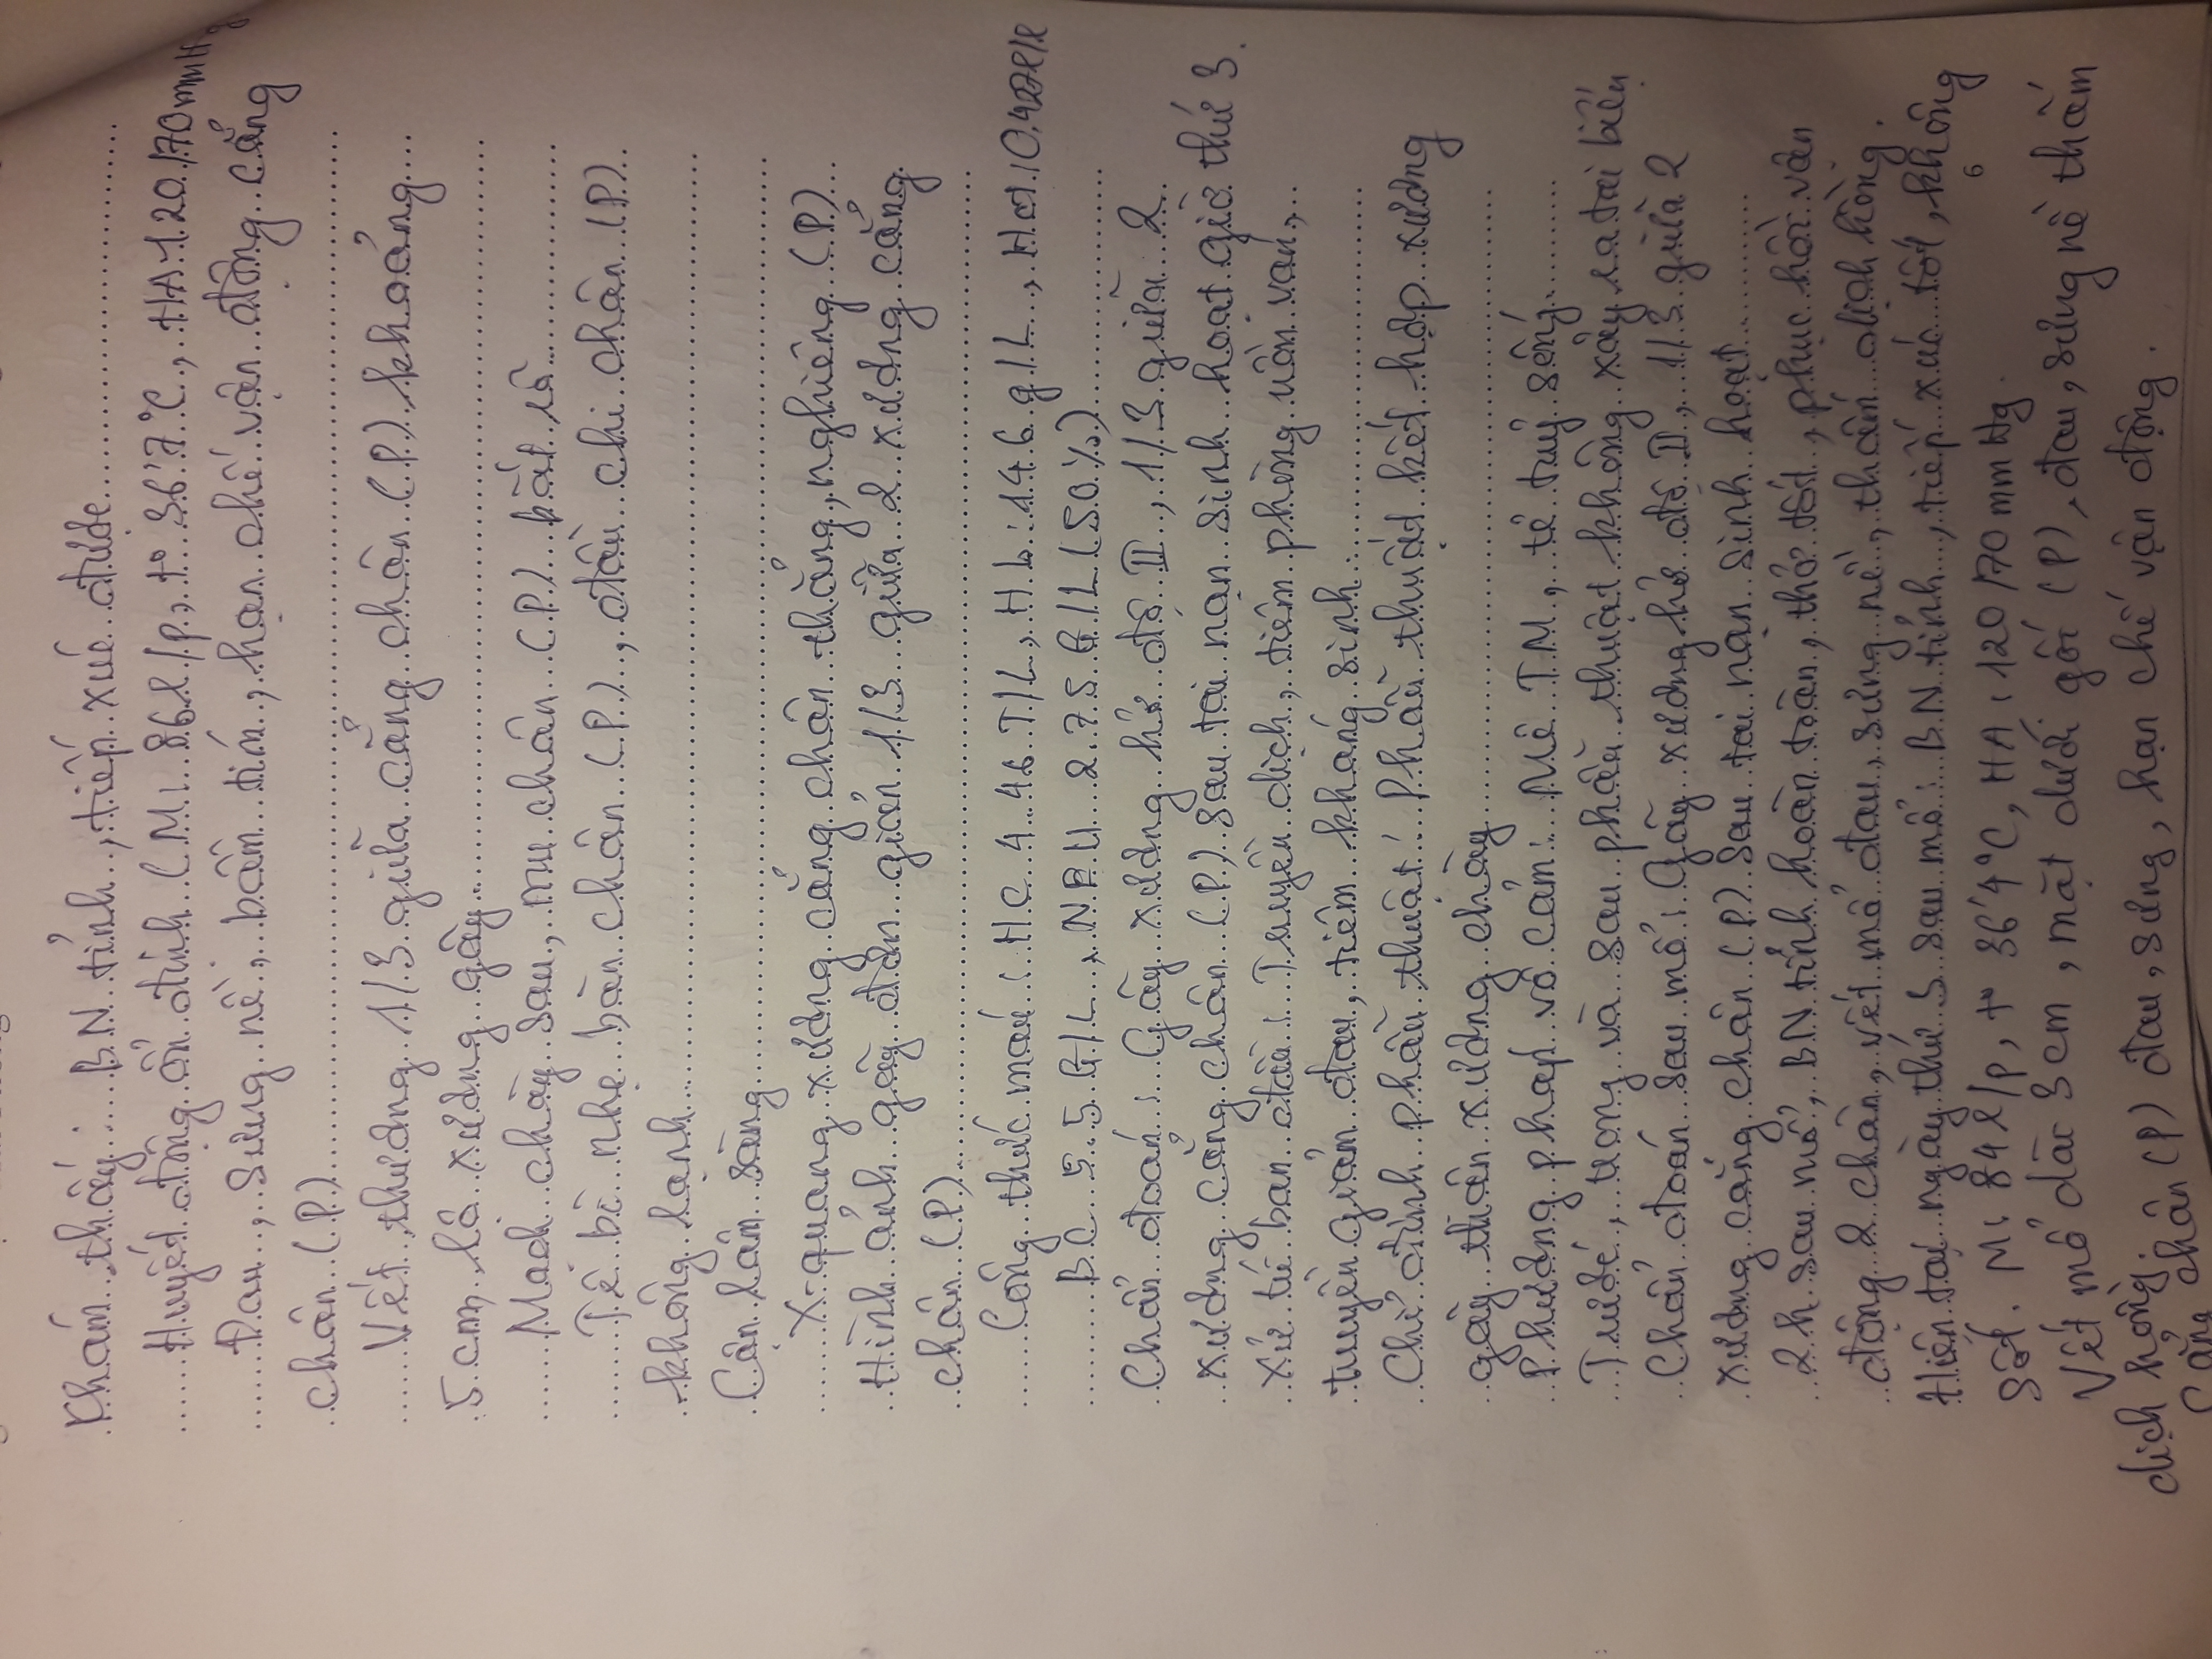 Khám thấy : BN tỉnh, tiếp xúc được
Huyết động ổn định (M: 86 l/p, t° 36'7°C, HA 120/70mmHg
Đau, sưng nề, bầm tím, hạn chế vận động cẳng
chân (P)
Vết thương 1/3 giữa cẳng chân (P) khoảng
5 cm, lộ xương gãy
Mạch chày sau, mu chân (P) bắt rõ
Tê bì nhẹ bàn chân (P), đầu chi chân (P)
không lạnh
Cận lâm sàng
X-quang xương cẳng chân thẳng, nghiêng (P)
Hình ảnh gãy đơn giản 1/3 giữa 2 xương cẳng
chân (P)
Công thức máu : HC 4.46 T/L, Hb: 146 g/L, Hct: 0,427l/l
BC 5.5 G/L, NEU 2.75 G/L (50%)
Chẩn đoán : Gãy xương hở độ II, 1/3 giữa 2
xương cẳng chân (P) sau tai nạn sinh hoạt giờ thứ 3.
Xử trí ban đầu : Truyền dịch, tiêm phòng uốn ván,
truyền giảm đau, tiêm kháng sinh.
Chỉ định phẫu thuật : Phẫu thuật kết hợp xương
gãy thân xương chày
Phương pháp vô cảm: Mê TM, tê tuỷ sống
Trước, trong và sau phẫu thuật không xảy ra tai biến
Chẩn đoán sau mổ: Gãy xương hở độ II, 1/3 giữa 2
xương cẳng chân (P) sau tai nạn sinh hoạt
2h sau mổ, BN tỉnh hoàn toàn, thở tốt, phục hồi vận
động 2 chân, vết mổ đau, sưng nề, thấm dịch hồng.
Hiện tại ngày thứ 3 sau mổ: BN tỉnh, tiếp xúc tốt, không
sốt. M: 84 l/p, t° 36'4°C, HA: 120/70 mmHg.
6
Vết mổ dài 3cm, mặt dưới gối (P), đau, sưng nề thấm
dịch hồng.
Cẳng chân (P) đau, sưng, hạn chế vận động.